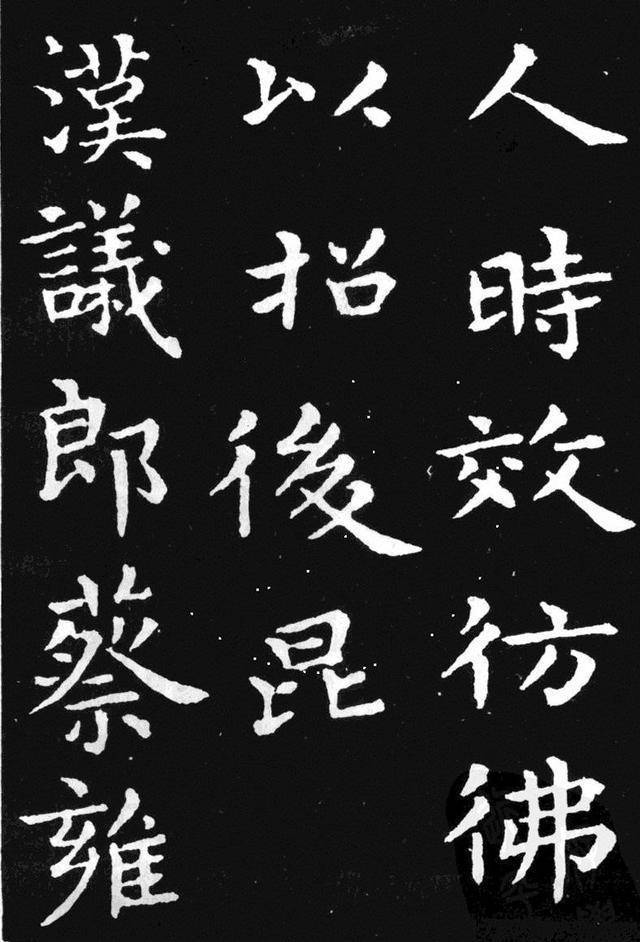 人時效彷彿
以招後昆
漢議郎蔡雍